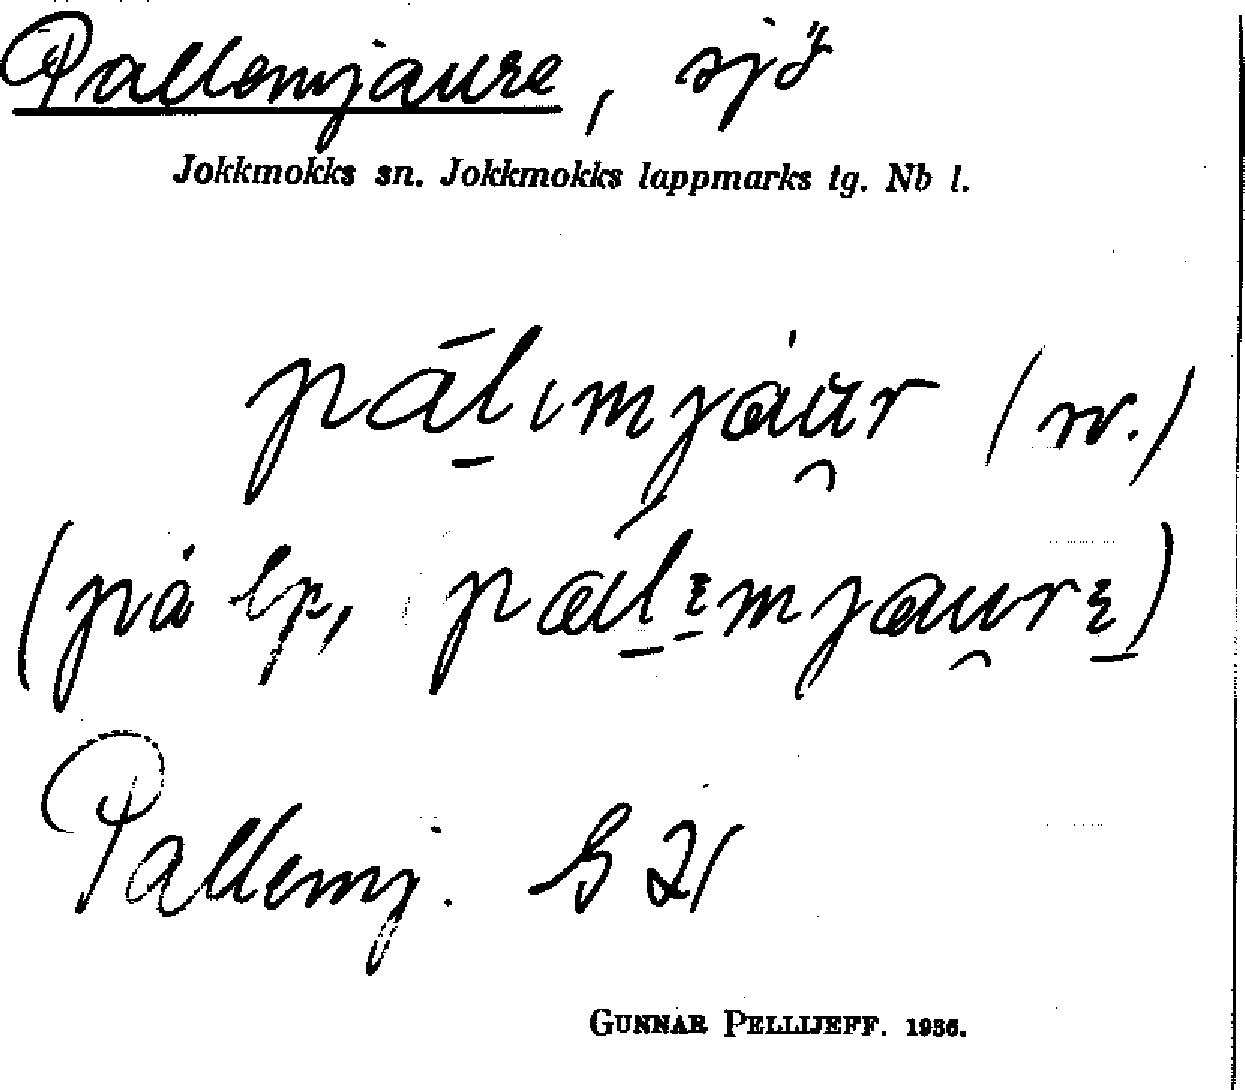 Pallemjaure, sjö
Jokkmokks sn. Jokkmokks lappmarks tg. Nb l.
pāl̲ımjàu̯r (nv.)
(på lp, pal̲ɛ̲mjau̯rɛ̲)
Pallemj. S 21
GUNNAR PELLIJEFF. 1936.